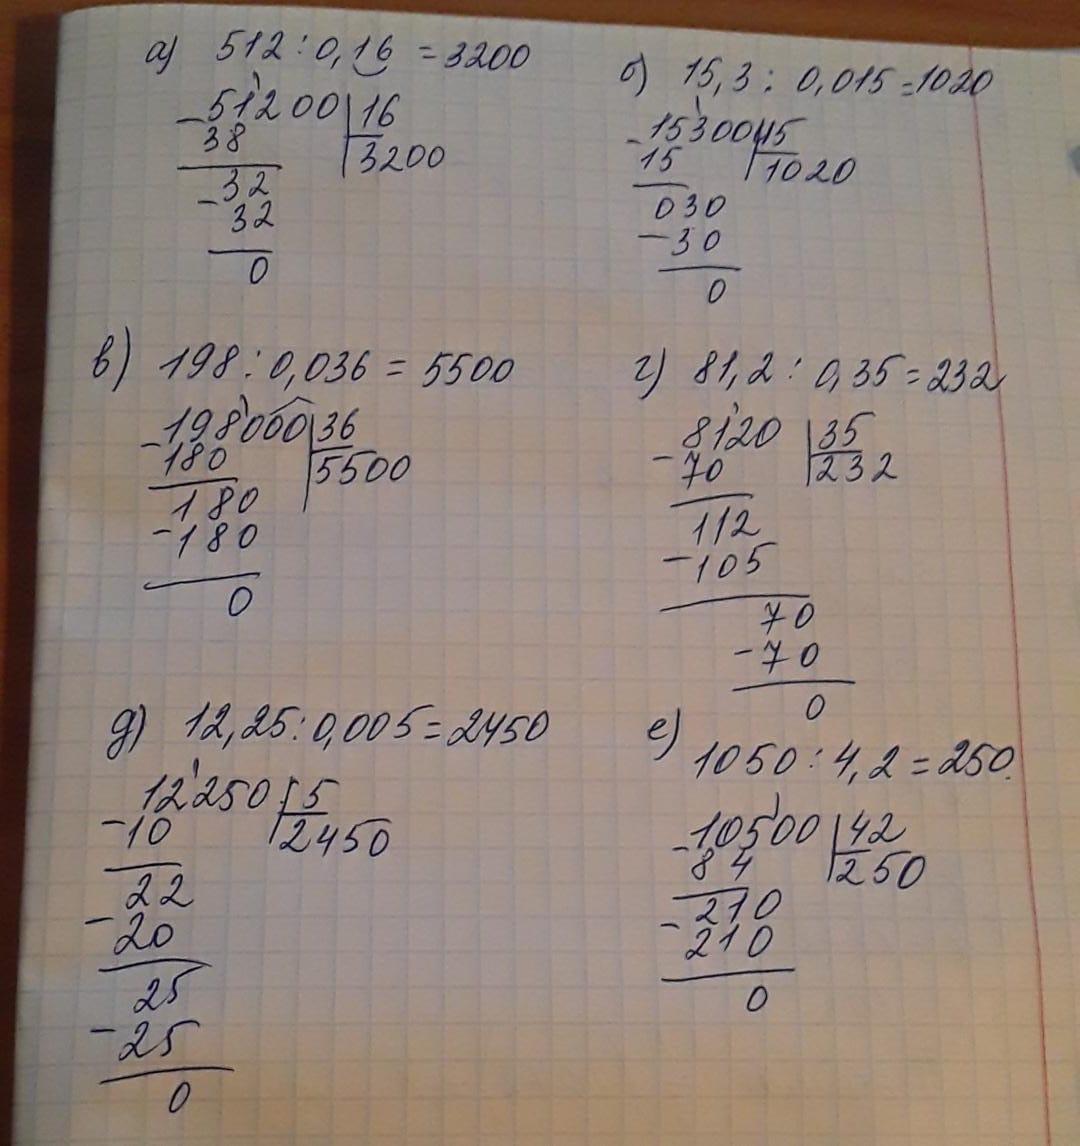 а) 512 : 0,16 = 3200
- 51200 | 16
38 | 3200
- 32
32
0
б) 15,3 : 0,015 = 1020
- 15300 | 15
15 | 1020
030
- 30
0
в) 198 : 0,036 = 5500
- 198000 | 36
180 | 5500
180
- 180
0
г) 81,2 : 0,35 = 232
- 8120 | 35
70 | 232
112
- 105
70
- 70
0
д) 12,25 : 0,005 = 2450
- 12250 | 5
10 | 2450
22
- 20
25
- 25
0
е) 1050 : 4,2 = 250.
- 10500 | 42
84 | 250
- 210
210
0